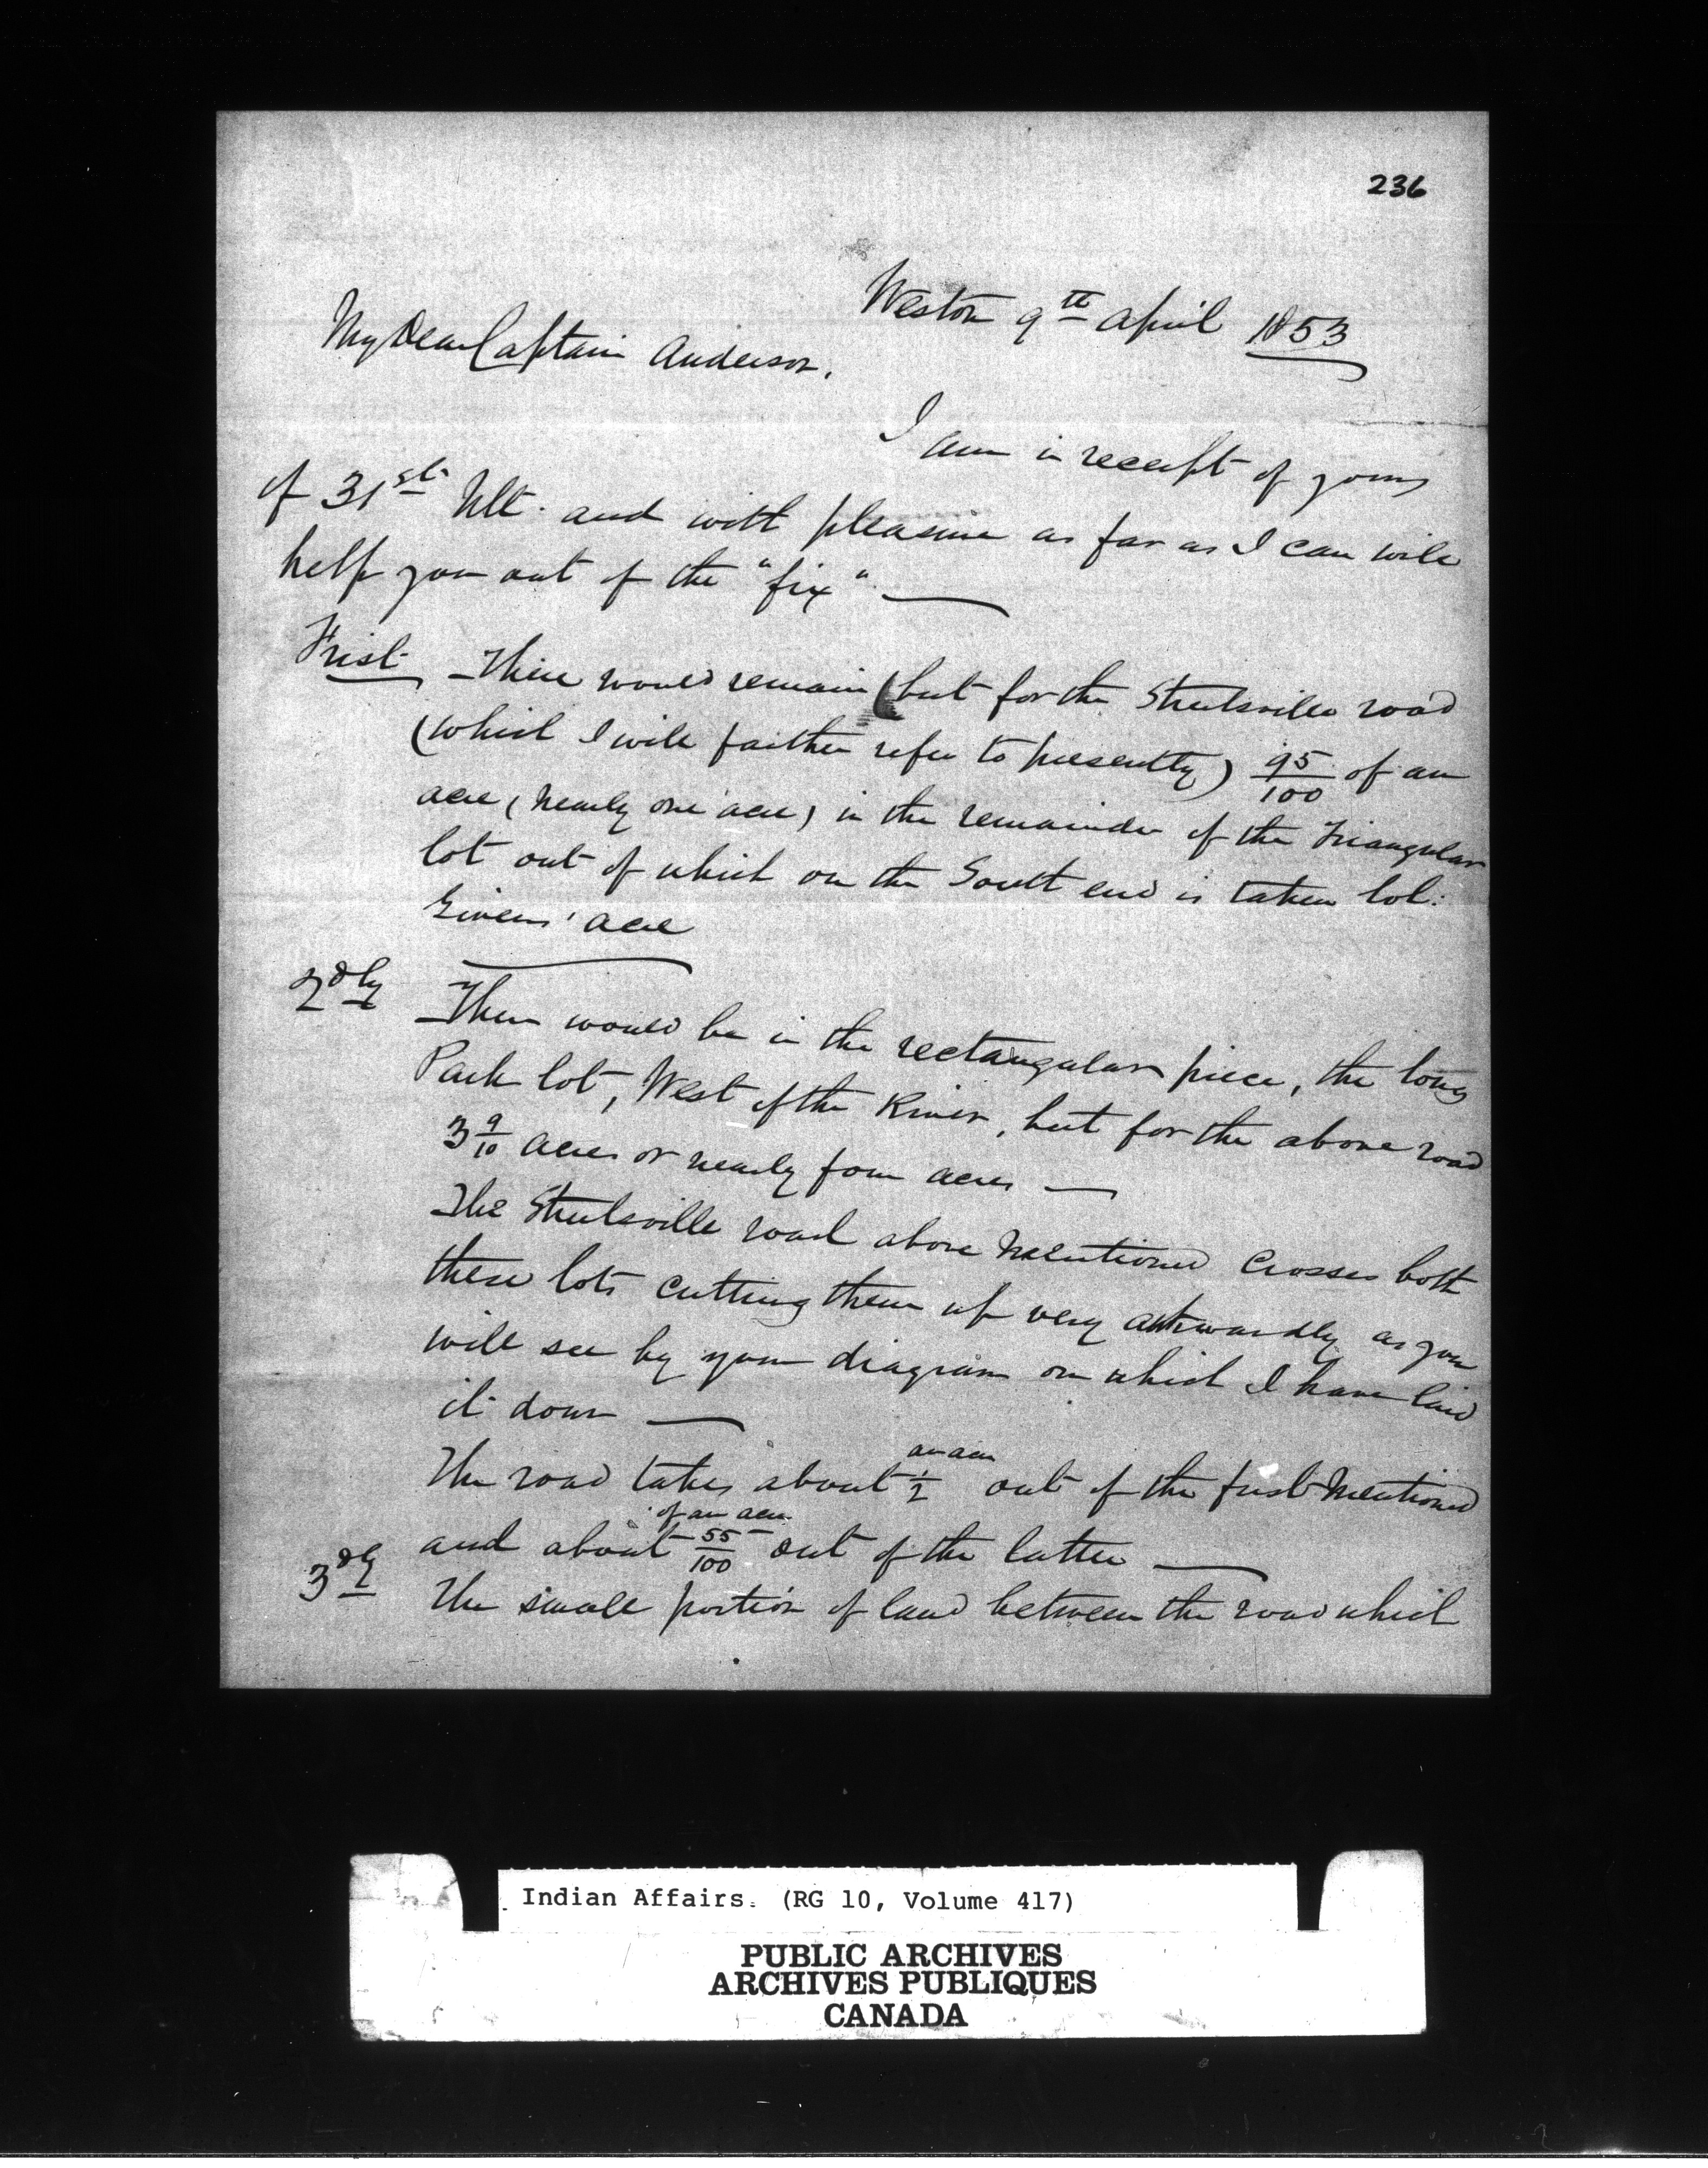 236
Weston 9th April 1853
My Dear Captain Anderson,
I am in receipt of yours
of 31st Ult. and with pleasure as far as I can will
help you out of the "fix" —
First — There would remain (but for the Streetsville road
(which I will farther refer to presently) 95/100 of an
acre (nearly one acre) in the remainder of the Triangular
lot out of which on the South end is taken Col:
Givens' acre
2dly There would be in the rectangular piece, the long
Park lot, West of the River, but for the above road
3 9/10 acres or nearly four acres —
The Streetsville road above mentioned crosses both
these lots cutting them up very awkwardly as you
will see by your diagram on which I have laid
it down —
an acre
The road takes about 1/2 out of the first mentioned
of an acre
and about 55/100 out of the latter —
3dly The small portion of land between the road which
Indian Affairs. (RG 10, Volume 417)
PUBLIC ARCHIVES
ARCHIVES PUBLIQUES
CANADA